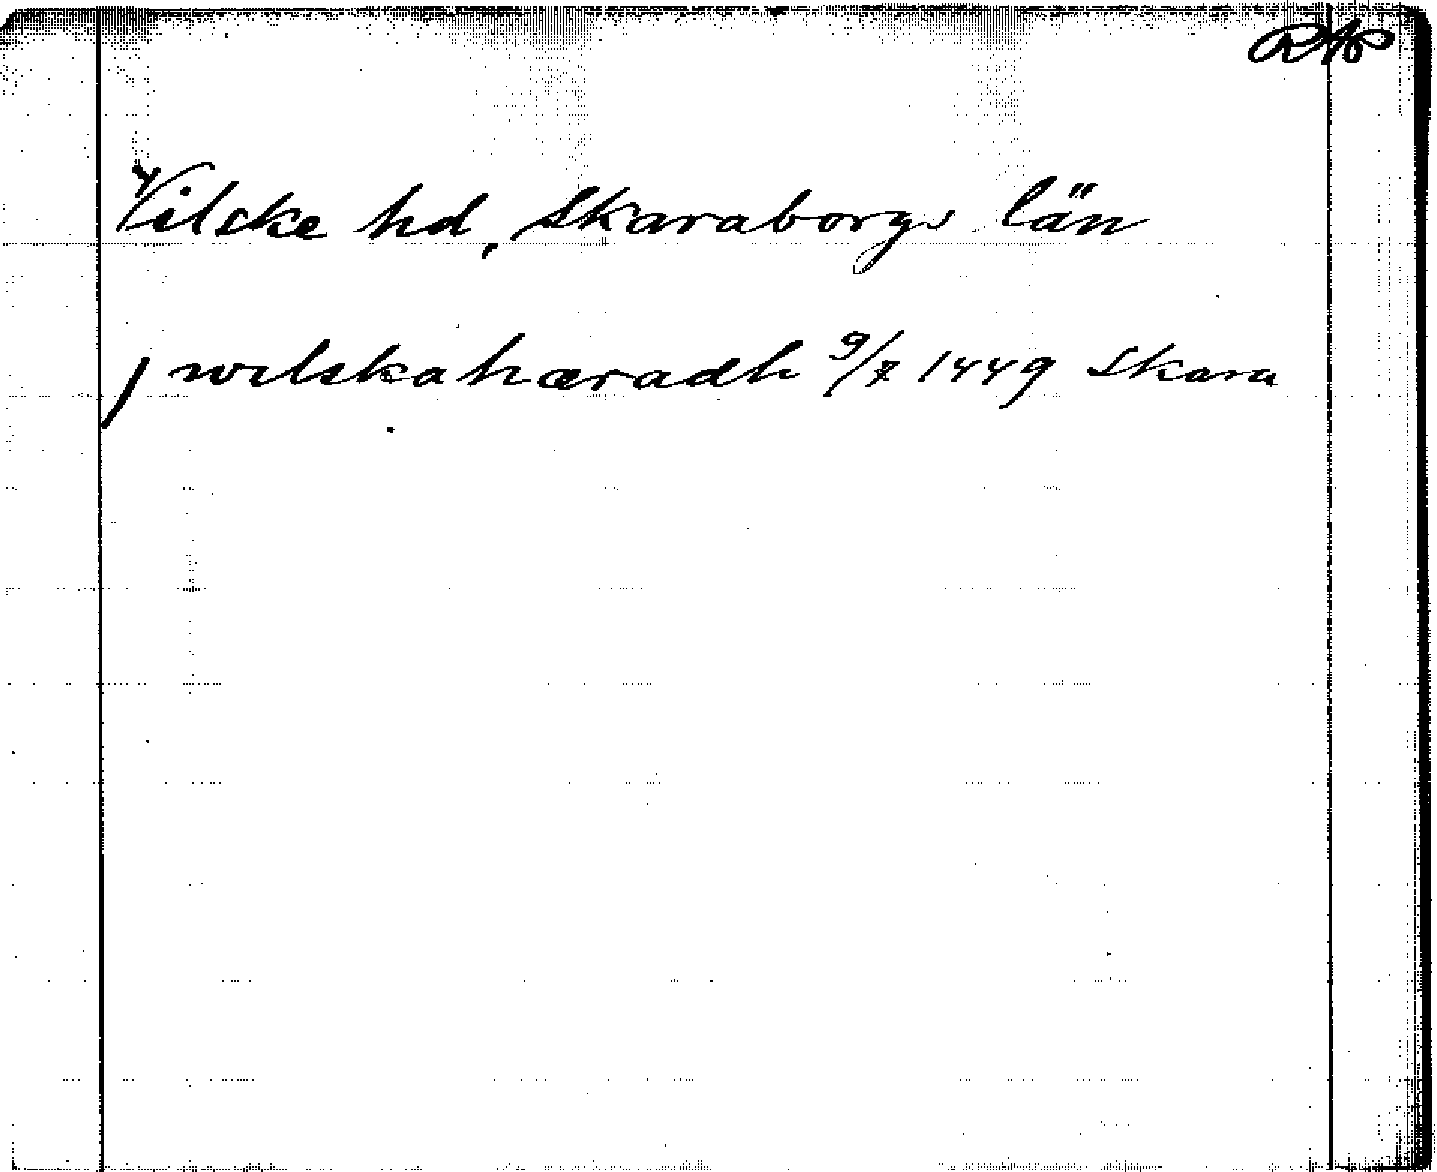 RAP
Vilske hd, Skaraborgs län
j wilskahæradh 9/7 1449 Skara